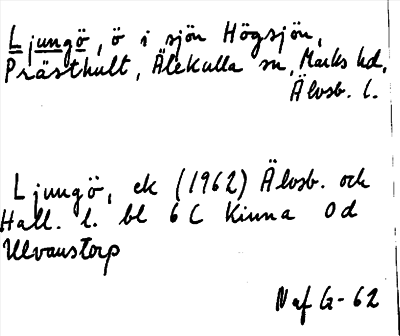 Ljungö, ö i sjön Högsjön,
Prästhult, Älekulla sn, Marks hd,
Älvsb. l.
Ljungö, ek (1962) Älvsb. och
Hall. l. bl 6 C Kinna 0 d
Ulvanstorp
Naf G-62